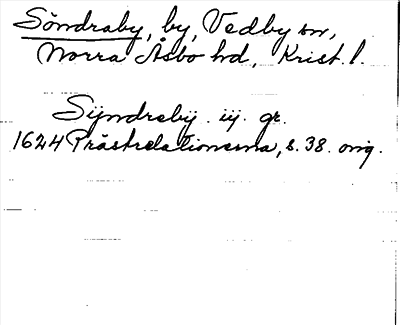 Söndraby, by, Vedby sn,
Norra Åsbo hd, Krist. l.
Syndreby . iij . gr.
1624 Prästrelationerna, s. 38. orig.